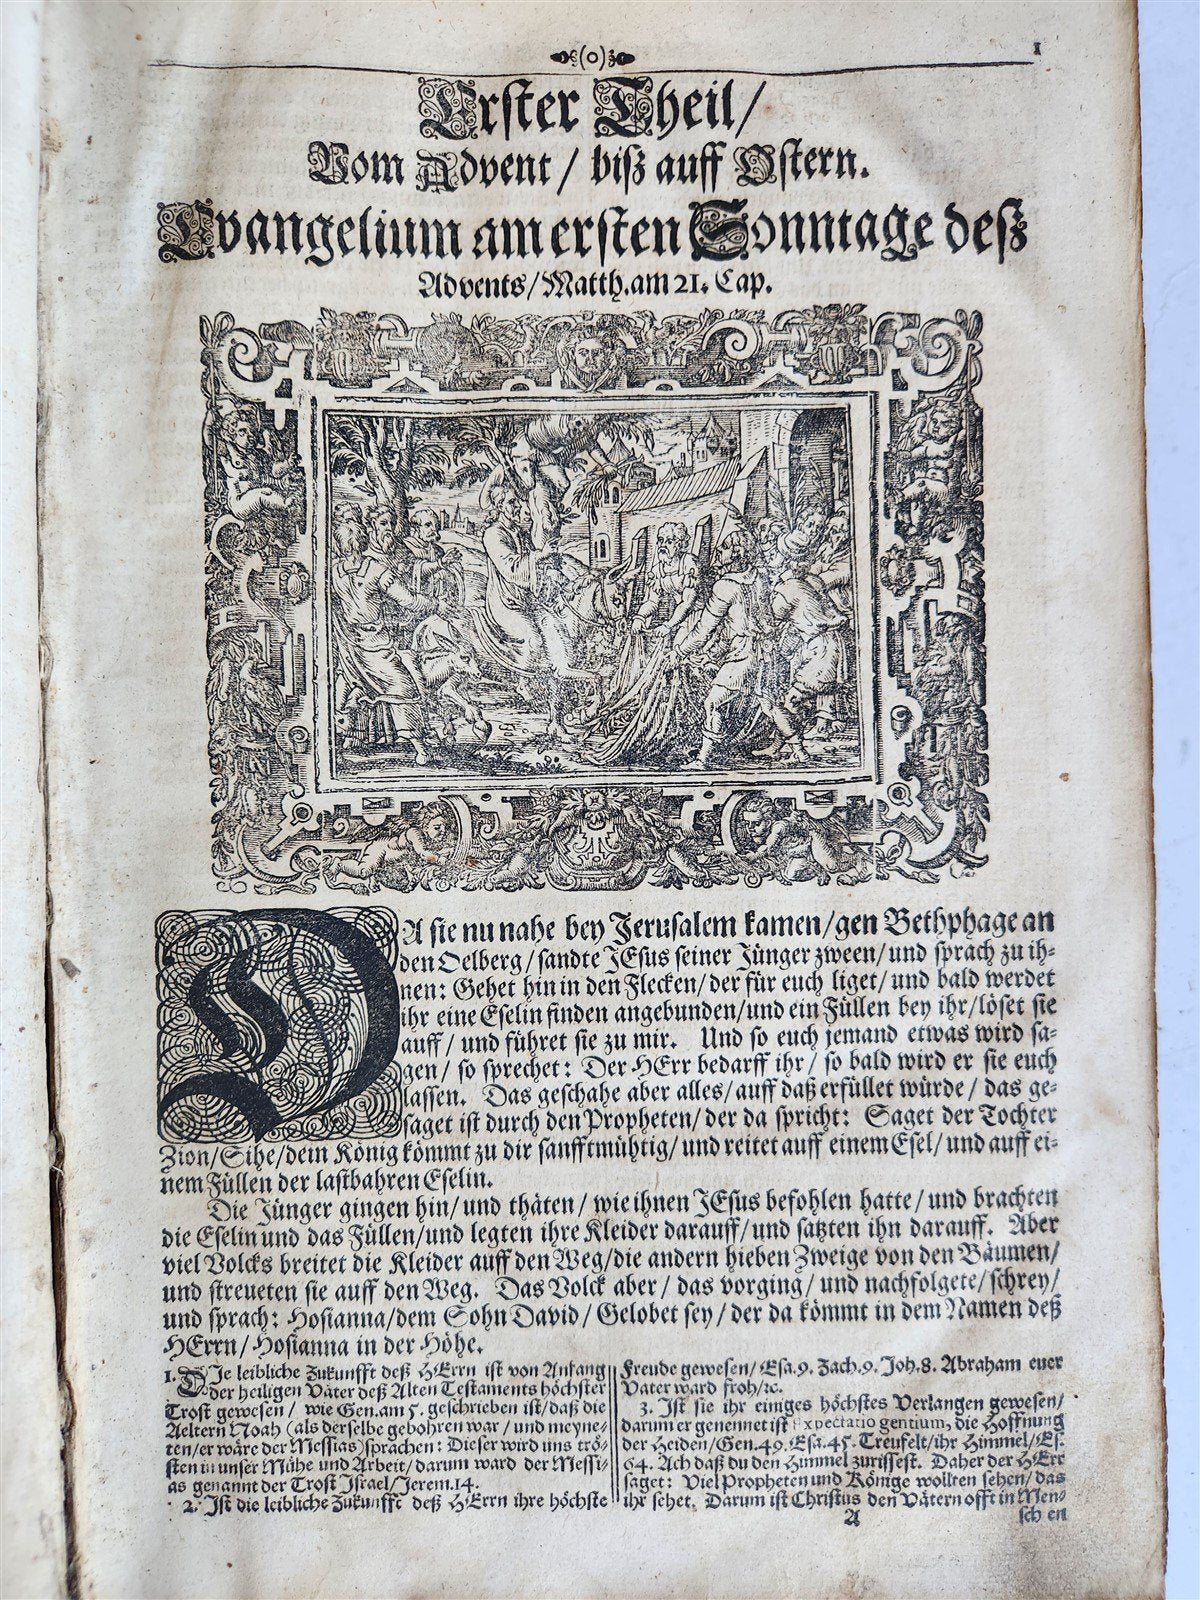 (o)
1
Erster Theil/
Vom Advent/ biß auff Ostern.
Evangelium am ersten Sonntage deß
Advents/Matth.am 21. Cap.
DA sie nu nahe bey Jerusalem kamen/gen Bethphage an
den Oelberg/sandte JEsus seiner Jünger zween/und sprach zu ih-
nen: Gehet hin in den Flecken/der für euch liget/und bald werdet
ihr eine Eselin finden angebunden/und ein Füllen bey ihr/löset sie
auff/ und führet sie zu mir. Und so euch jemand etwas wird sa-
gen/ so sprechet: Der HErr bedarff ihr/ so bald wird er sie euch
lassen. Das geschahe aber alles/auff daß erfüllet würde/ das ge-
saget ist durch den Propheten/der da spricht: Saget der Tochter
Zion/Sihe/dein König kömmt zu dir sanfftmühtig/und reitet auff einem Esel/und auff ei-
nem Füllen der lastbahren Eselin.
Die Jünger gingen hin/und thäten/ wie ihnen JEsus befohlen hatte/und brachten
die Eselin und das Füllen/und legten ihre Kleider darauff/und satzten ihn darauff. Aber
viel Volcks breitet die Kleider auff den Weg/die andern hieben Zweige von den Bäumen/
und streueten sie auff den Weg. Das Volck aber/ das vorging/und nachfolgete/schrey/
und sprach: Hosianna/dem Sohn David/Gelobet sey/der da kömmt in dem Namen deß
HErrn/Hosianna in der Höhe.
1. DJe leibliche Zukunfft deß HErrn ist von Anfang
der heiligen Väter deß Alten Testaments höchster
Trost gewesen/ wie Gen.am 5. geschrieben ist/daß die
Aeltern Noah (als derselbe gebohren war/und meyne-
ten/er wäre der Messias) sprachen: Dieser wird uns trö-
sten in unser Mühe und Arbeit/darum ward der Messi-
as genannt der Trost Israel/Jerem.14.
2. Ist die leibliche Zukunfft deß HErrn ihre höchste
Freude gewesen/Esa.9. Zach.9. Joh.8. Abraham euer
Vater ward froh/ꝛc.
3. Ist sie ihr einiges höchstes Verlangen gewesen/
darum er genennet ist Expectatio gentium, die Hoffnung
der Heiden/Gen.49.Esa.45. Treufelt/ihr Himmel/Es.
64. Ach daß du den Himmel zurissest. Daher der HErr
saget: Viel Propheten und Könige wollten sehen/das
ihr sehet. Darum ist Christus den Vätern offt in Men-
A
schen